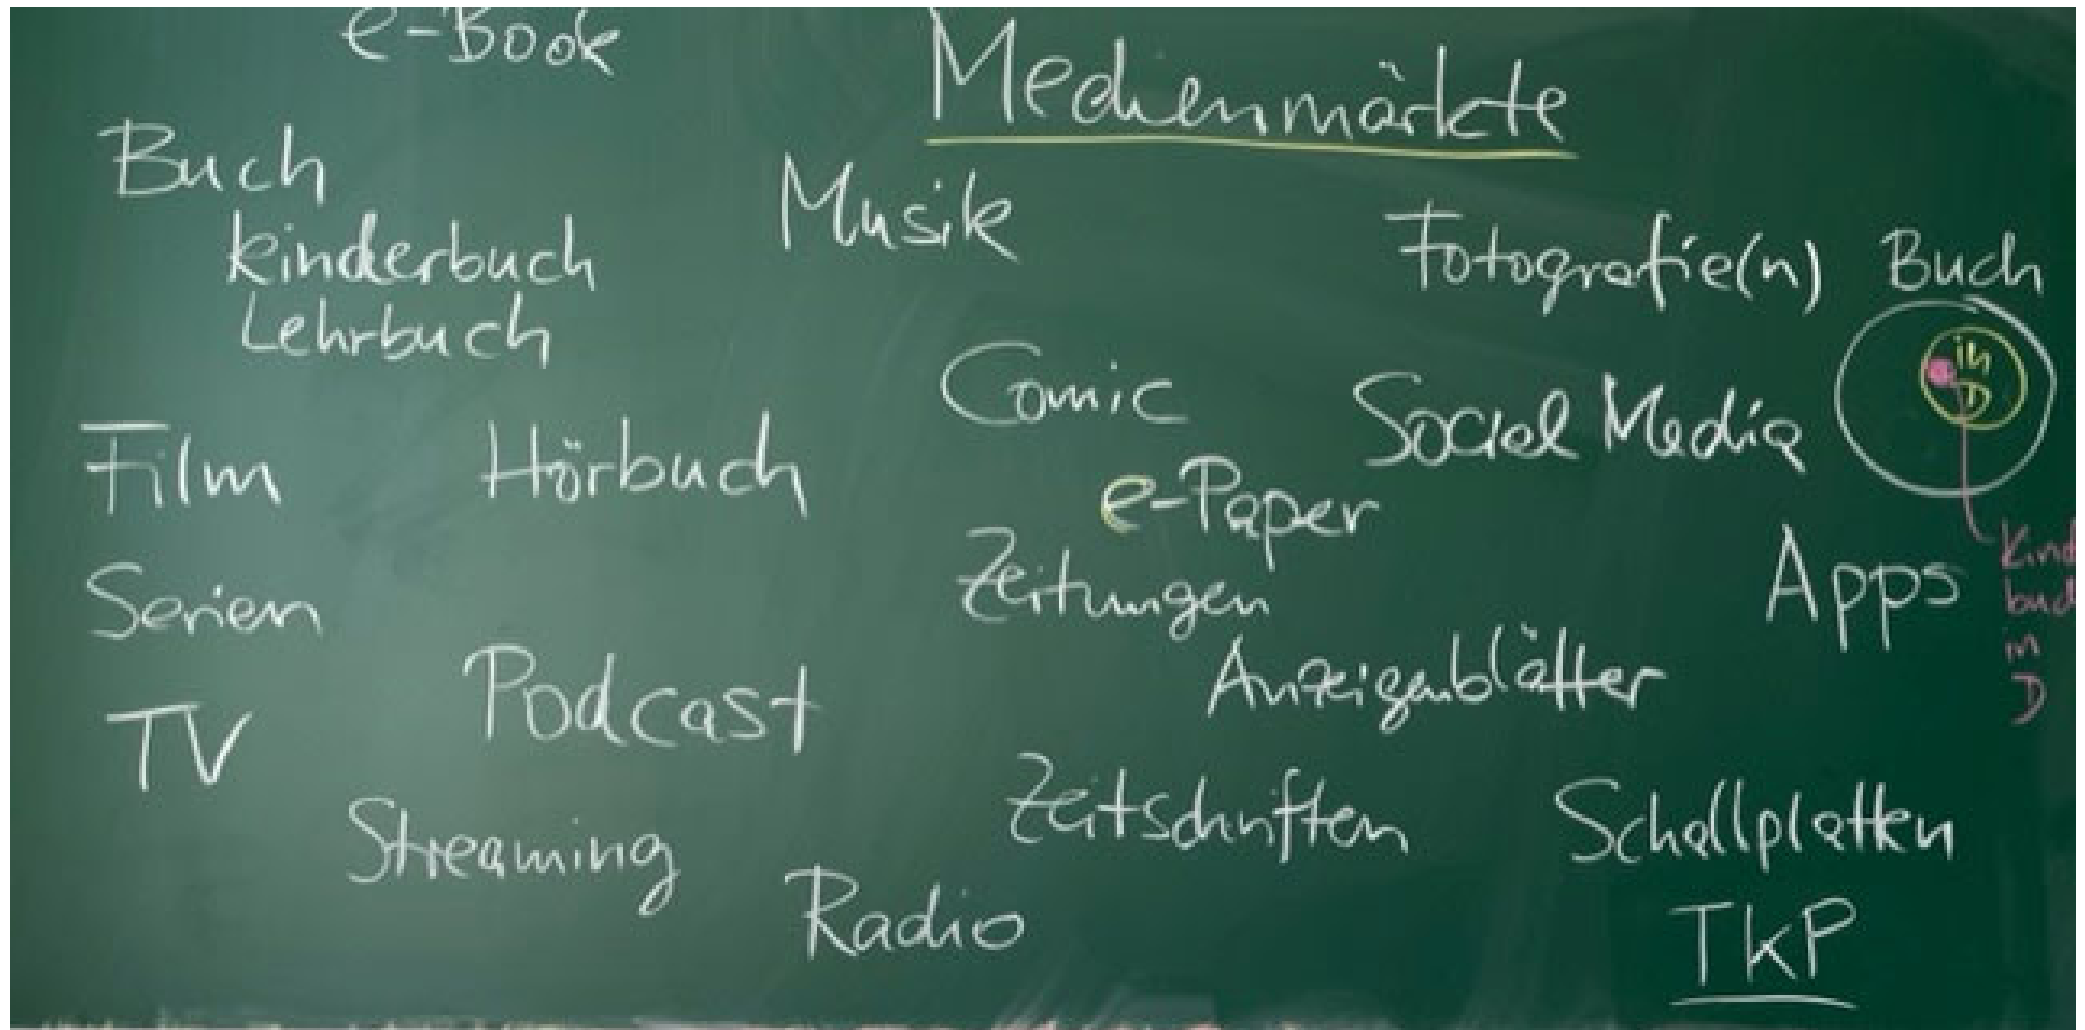 e-Book
Medienmärkte
Buch
Kinderbuch
Lehrbuch
Musik
Fotografie(n)
Buch
in
D
Comic
Social Media
Film
Hörbuch
e-Paper
Zeitungen
Apps
Kind
buch
in
D
Serien
Anzeigenblätter
Podcast
TV
Zeitschriften
Schallplatten
Streaming
Radio
TKP